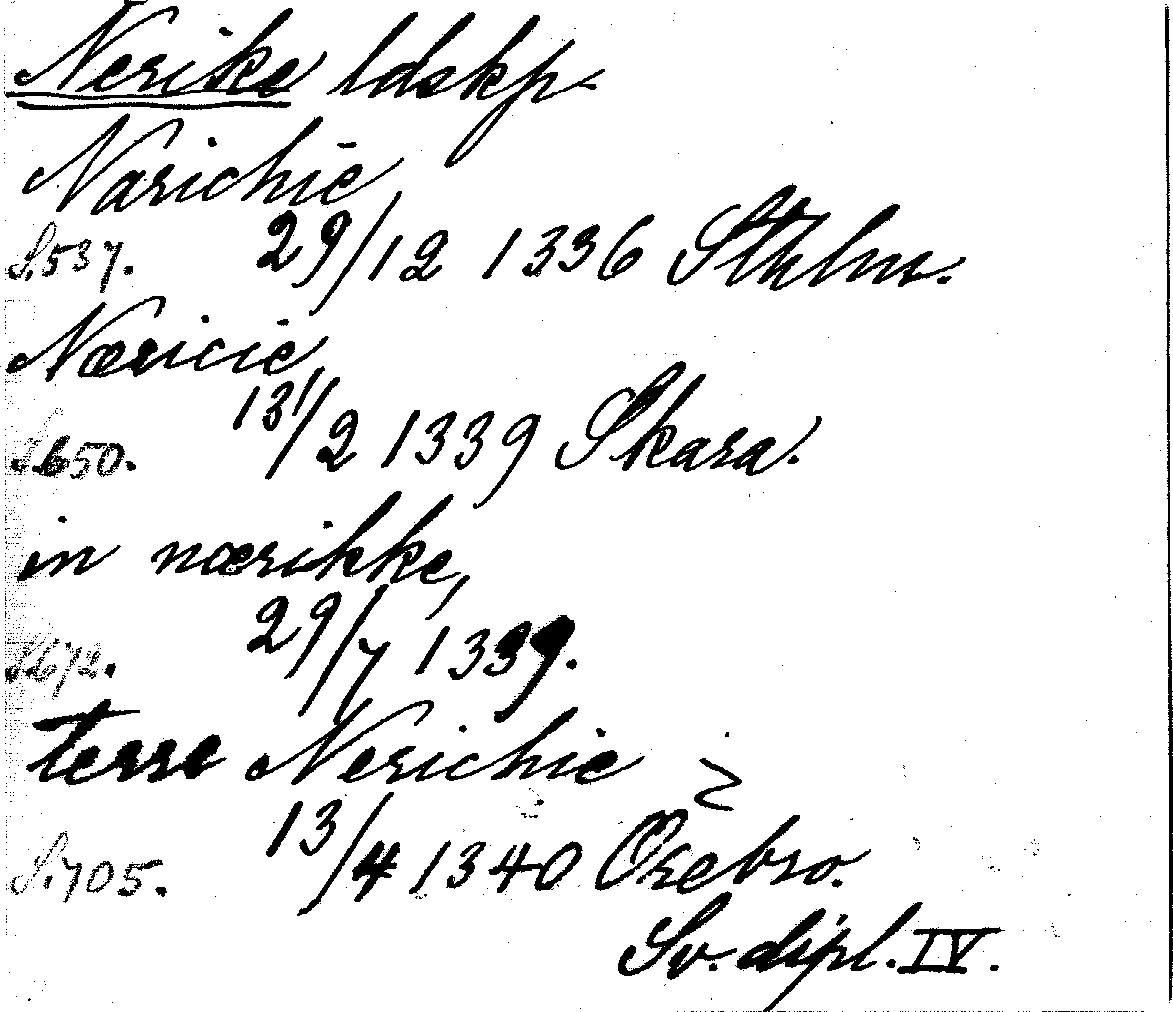 Nerike ldskp.
Narichie
S.537. 29/12 1336 Sthlm.
Næricie,
S.650. 13/2 1339 Skara.
in nærikke,
S.672. 29/7 1339.
terre Nerichie
S.705. 13/4 1340 Örebro.
Sv. dipl. IV.